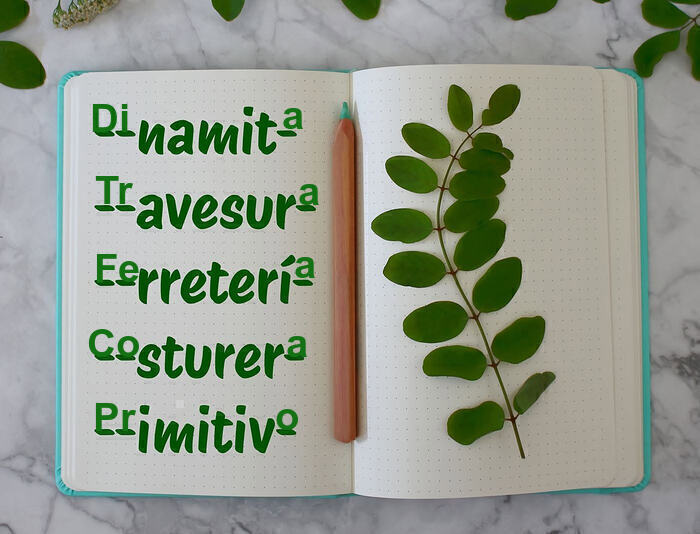 Dinamita
Travesura
Ferretería
Costurera
Primitivo